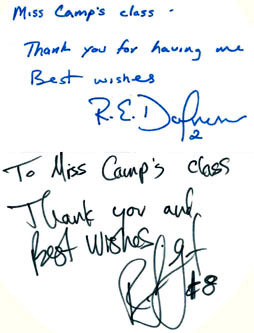 Miss Camp's class -
Thank you for having me
Best wishes
R.E.
2
To Miss Camp's class
Thank you and
Best Wishes
#8